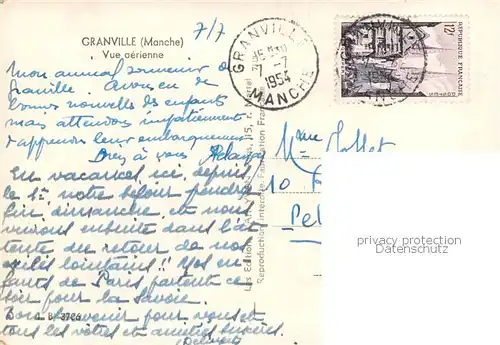 7/7
GRANVILLE (Manche)
Vue aérienne
Mon annuel souvenir de
Granville. Avons eu de
bonnes nouvelles des enfants
mais attendons impatiemment
d'apprendre leur embarquement
Bien à vous
En vacances ici, depuis
le 1er, notre séjour prendra
fin dimanche, et nous
vivrons ensuite dans l'at
tente du retour de nos
exilés lointains!! Vos en
fants de Paris partent ce
soir pour la Savoie.
Bon souvenir pour vous et
tous les vôtres et amitiés
B. 3726
GRANVILLE
7-7
1954
MANCHE
12F
REPUBLIQUE FRANÇAISE
Mme
10
Pel
Les Editions
Reproduction interdite. Fabrication Fran
privacy protection
Datenschutz